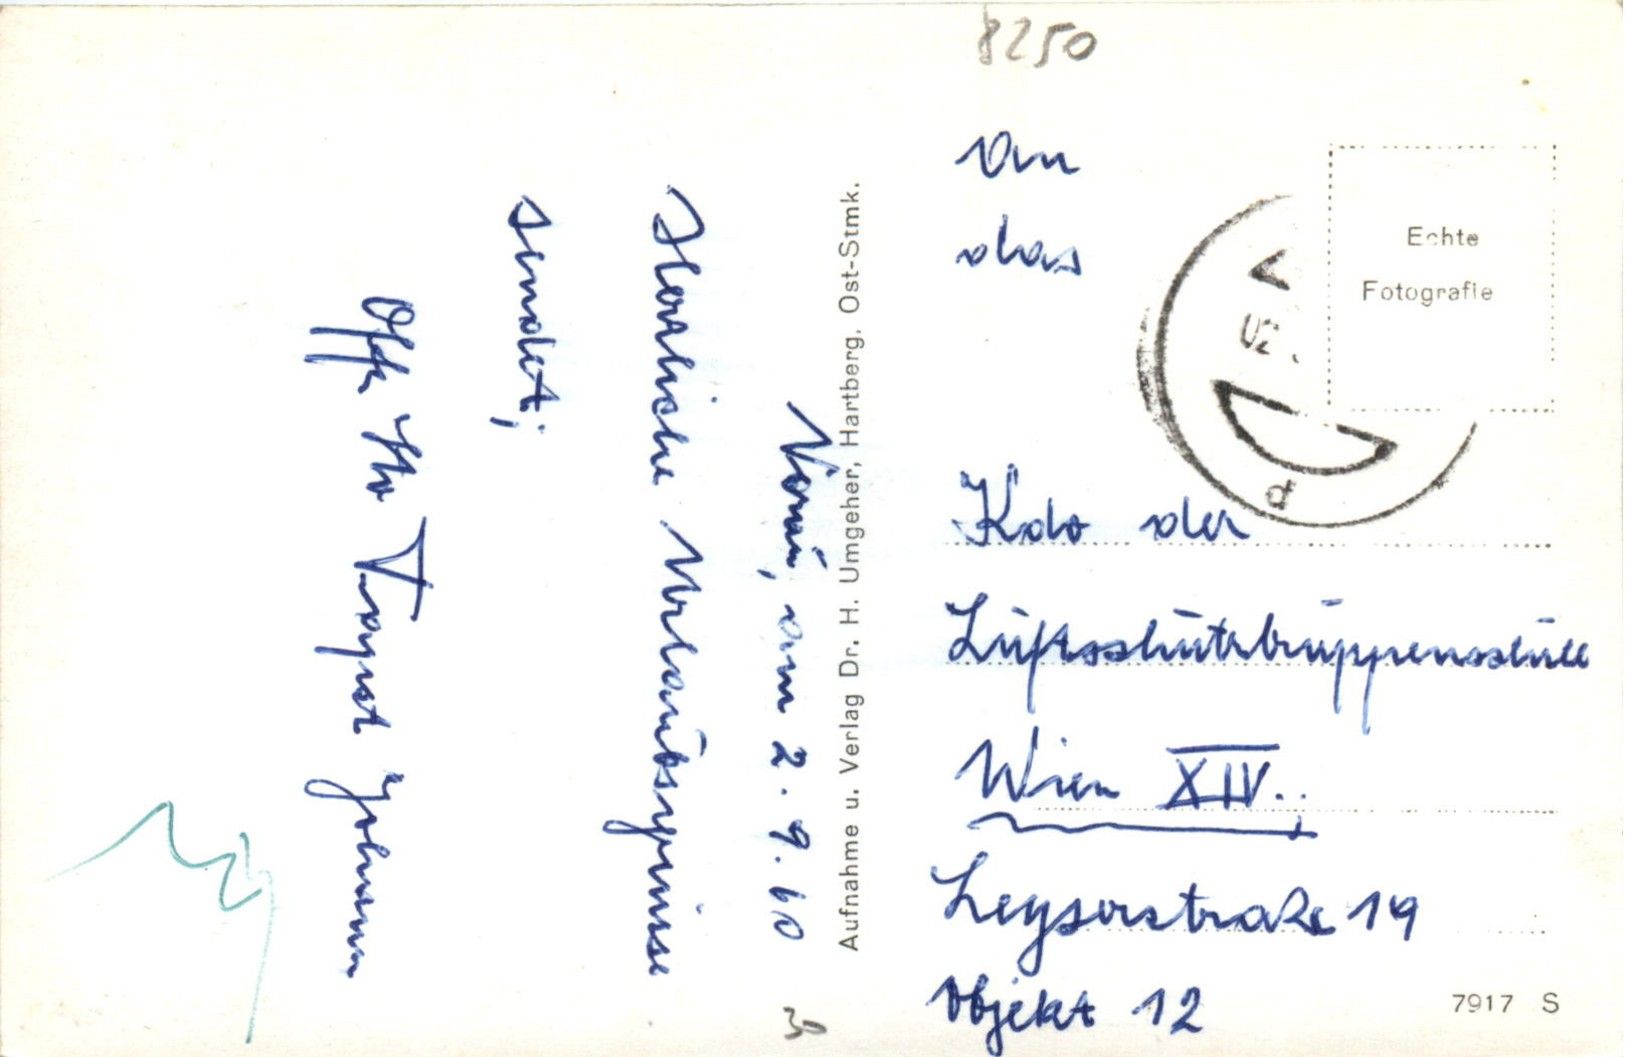 8250
Vorau, am 2.9.60
Herzliche Urlaubsgrüsse
sendet;
Johann
Aufnahme u. Verlag Dr. H. Umgeher, Hartberg, Ost-Stmk.
30
An
das
Kdo der
Luftschutztruppenschule
Wien XIV.
Leyserstraße 19
Objekt 12
Echte
Fotografie
7917 S